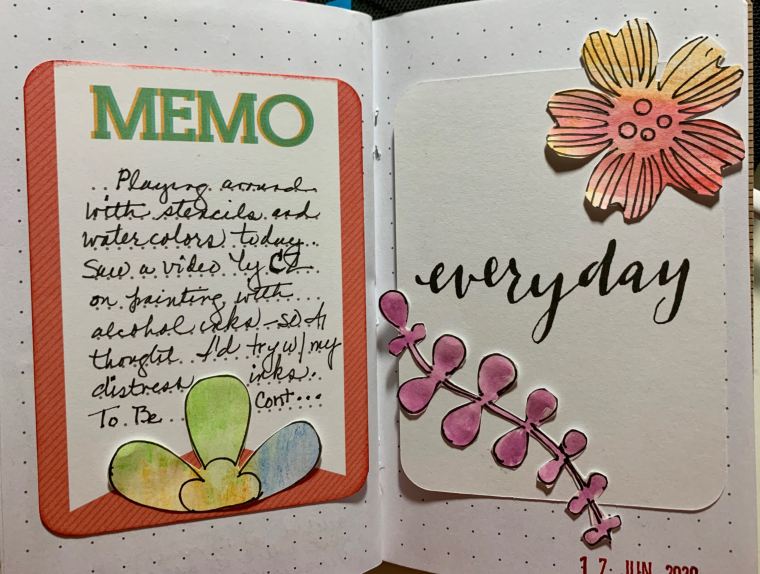 MEMO
.. Playing around
with stencils and
watercolors today..
Saw a video by CZ
on painting with
alcohol inks - so I
thought I'd try w/ my
distress inks.
To Be Cont...
everyday
17 JUN 2020